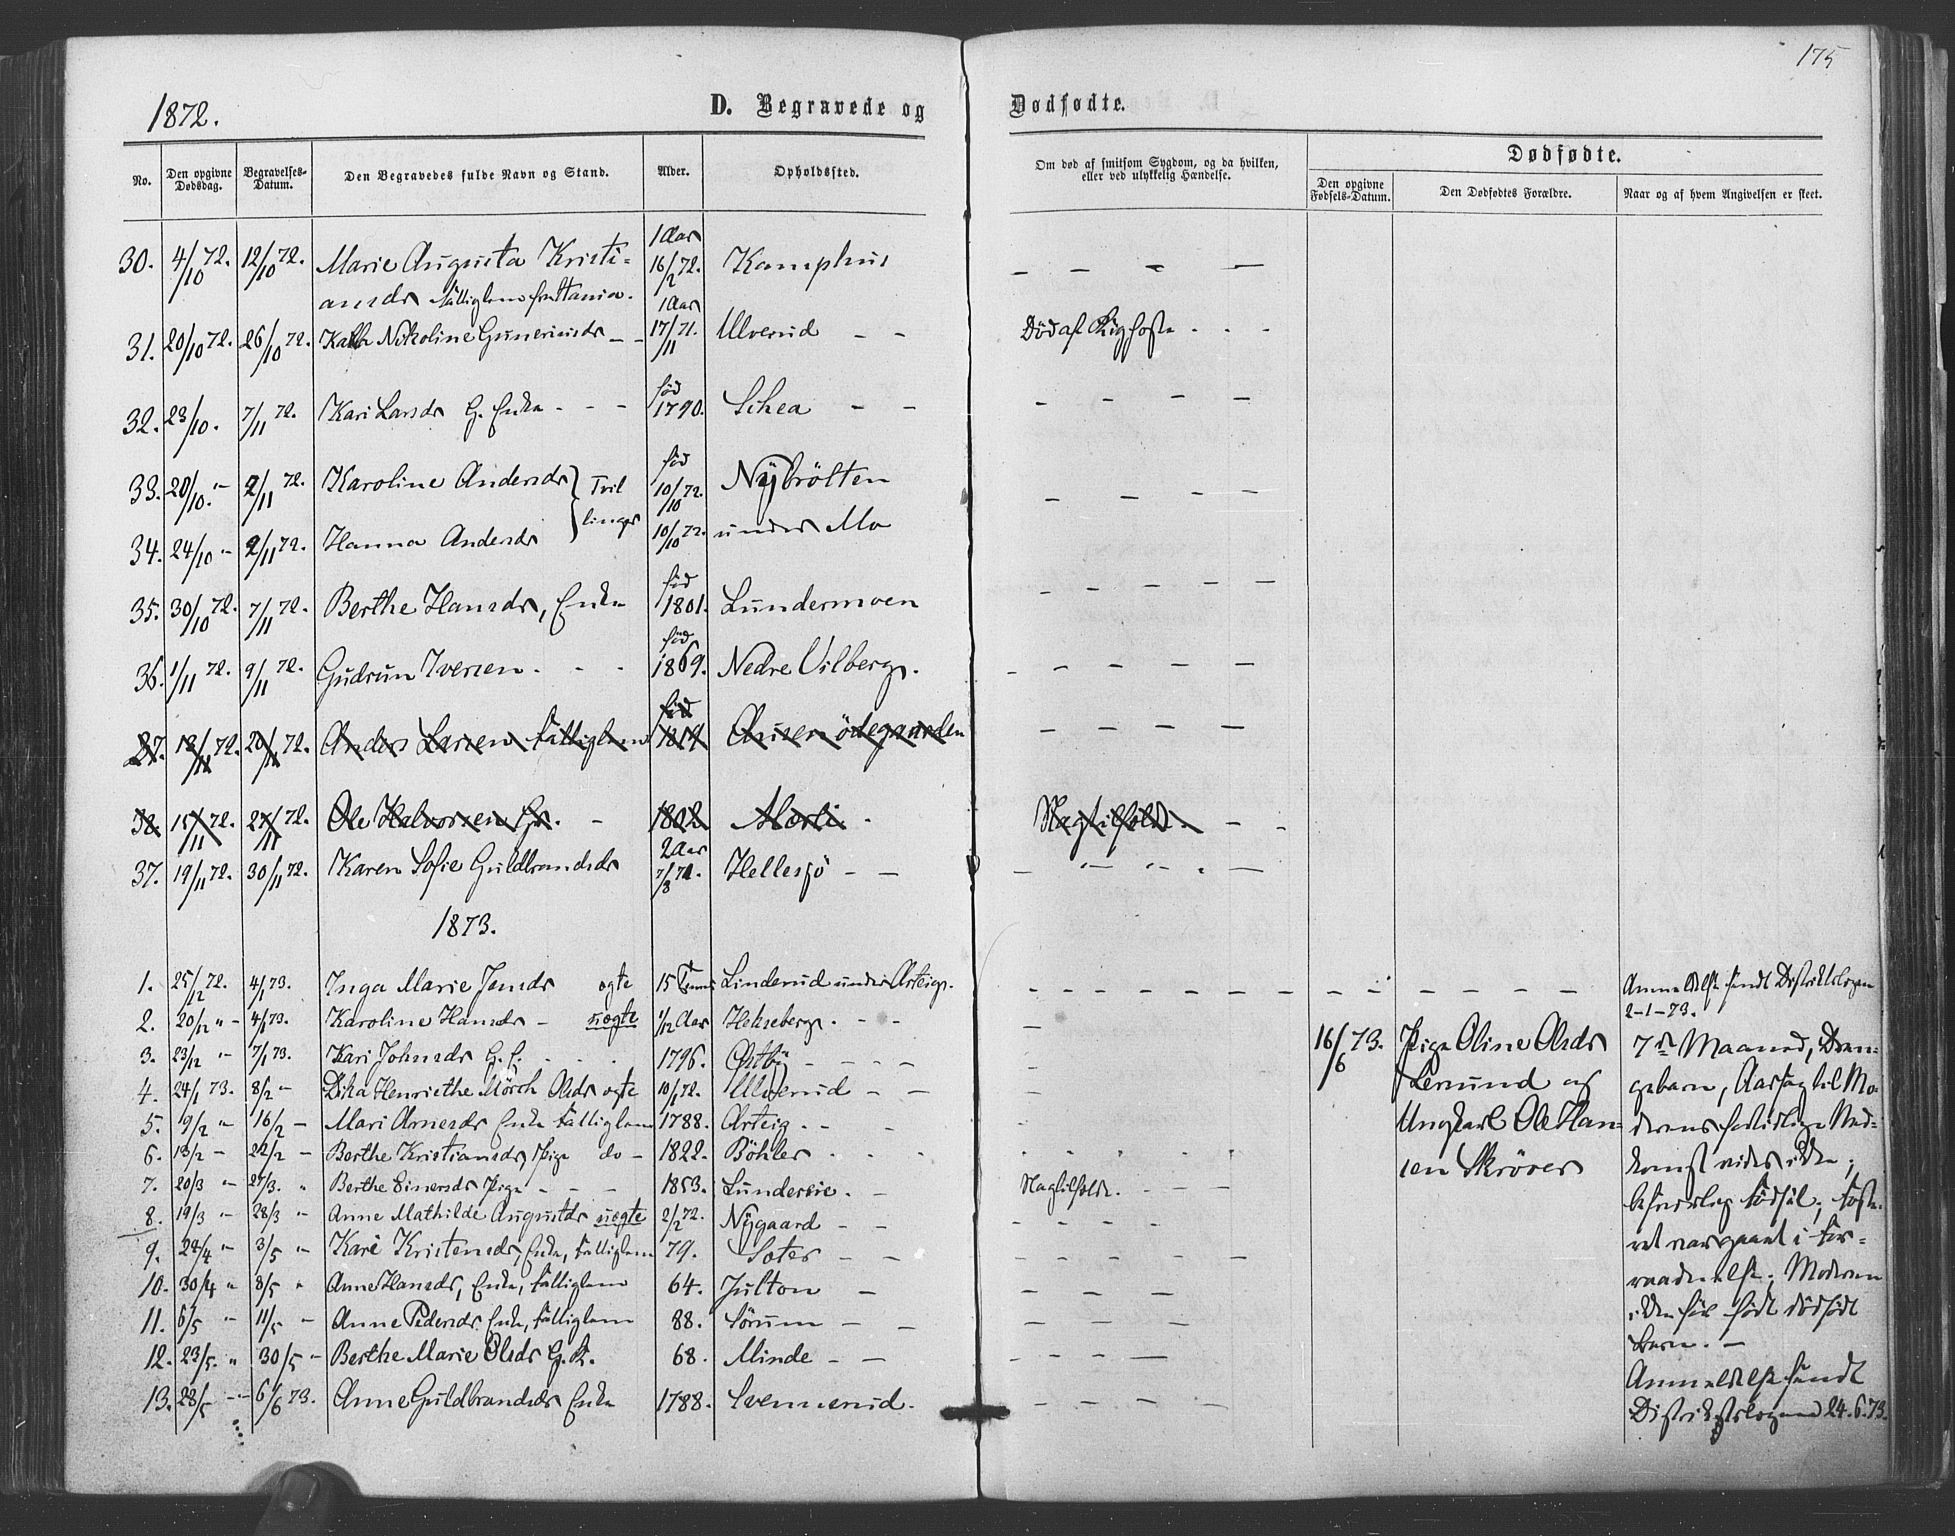 175
1872.
D. Begravede og Dødfødte.
No. Den opgivne Dødsdag. Begravelses-Datum. Den Begravedes fulde Navn og Stand. Alder. Opholdssted. Om død af smitsom Sygdom, og da hvilken, eller ved ulykkelig Hændelse. Dødfødte.
Den opgivne Fødsels-Datum. Den Dødfødtes Forældre. Naar og af hvem Angivelsen er skeet.
30. 4/10 72. 12/10 72. Marie Augusta Kristi= 1 Aar 16/2 72. Kamphus
ansdr fattiglem
31. 20/10 72. 26/10 72. Kath Nikoline Guneriusdr 1 Aar 17/11 71. Ulverud Død af Kighoste
32. 23/10. 7/11 72. Kari Larsdr G. Enke født 1790. Schea
33. 20/10. " 2/11 72. Karoline Andersdr Tvil fød 10/10 72. Nybrölten
34. 24/10 " 2/11 72. Hanna Andersdr linger 10/10 72. under Mo
35. 30/10 72. 7/11 72. Berthe Hansdr, Enke fød 1801. Lundermoen
36. 1/11 72. 9/11 72. Gudrun Iversen. född 1869. Nedre Vilberg.
27. 13/11 72. 20/11 72. Anders Larsen fattiglem fød 1819 Ausenödegaarden
38 15/11 72. 27/11 72. Ole Halvorsen Gr. 1802 Morli Slagtilfælde.
37. 19/11 72. 30/11 72. Karen Sofie Guldbrandsdr 2 Aar 7/8 71. Hellesjö
1873.
1. 25/12 72. 4/1 73. Inga Marie Jensdr ægte 15 Timer Linderud under Arteig. Anmeldelse sendt Distriktslægen
2-1-73.
2. 20/12 " 4/1 73. Karoline Hansdr uægte 1/12 Aar Hekseberg.
3. 23/12 " 7/1 73. Kari Johnsdr G. E. 1796. Østby 16/6 73. Pige Oline Olsdr 7de Maaned, Dren=
4. 24/1 73. 8/2 " Dika Henriethe Mörch Olsdr ægte 10/1 72. Ulverud Lersund og gebarn, Aarsag til Mo=
5. 9/2 " 16/2 Mari Arnesdr Enke fattiglem 1788. Arteig. Ungkarl Ole Han= derens fortidlige Ned=
6. 13/2 22/2 Berthe Kristiansdr, Pige do 1822. Böhler sen Skröver komst vides ikke;
7. 20/3 " 27/3. " Berthe Einersdr Pige 1853. Lundereie. Slagtilfælde.
8. 19/3 " 28/3 " Anne Mathilde Augustdr uægte 2/2 72. Nygaard
9. 24/4 " 3/5 " Kari Kristensdr, Enke, fattiglem 79. Soter ret navngivet i For=
10. 30/4 " 8/5 " Anne Hansdr, Enke, fattiglem 64. Julton Moderen
11. 6/5 " 11/5 " Anne Pedersdr Enke, fattiglem 88. Sörum ikke før født dødfødt
12. 23/5. " 30/5 " Berthe Marie Olsdr G. K. 68. Minde Barn.
Anmeldelse sendt
13. 28/5 6/6 73. Anne Guldbrandsdr Enke 1788. Svenserud. Distriktslægen 24.6.73.